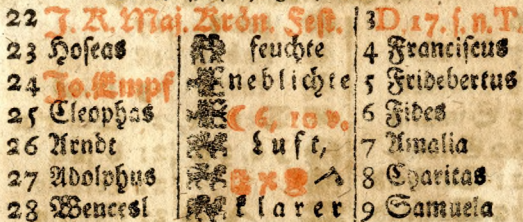 22 J. R. Maj. Krön. Fest. 3 D 17. s. n. T.
23 Hoseas feuchte 4 Franciscus
24 Jo. Empf neblichte 5 Fridebertus
25 Cleophas ☾ 6, 10 v. 6 Fides
26 Arndt Luft, 7 Amalia
27 Adolphus 8 Charitas
28 Wencesl klarer 9 Samuela